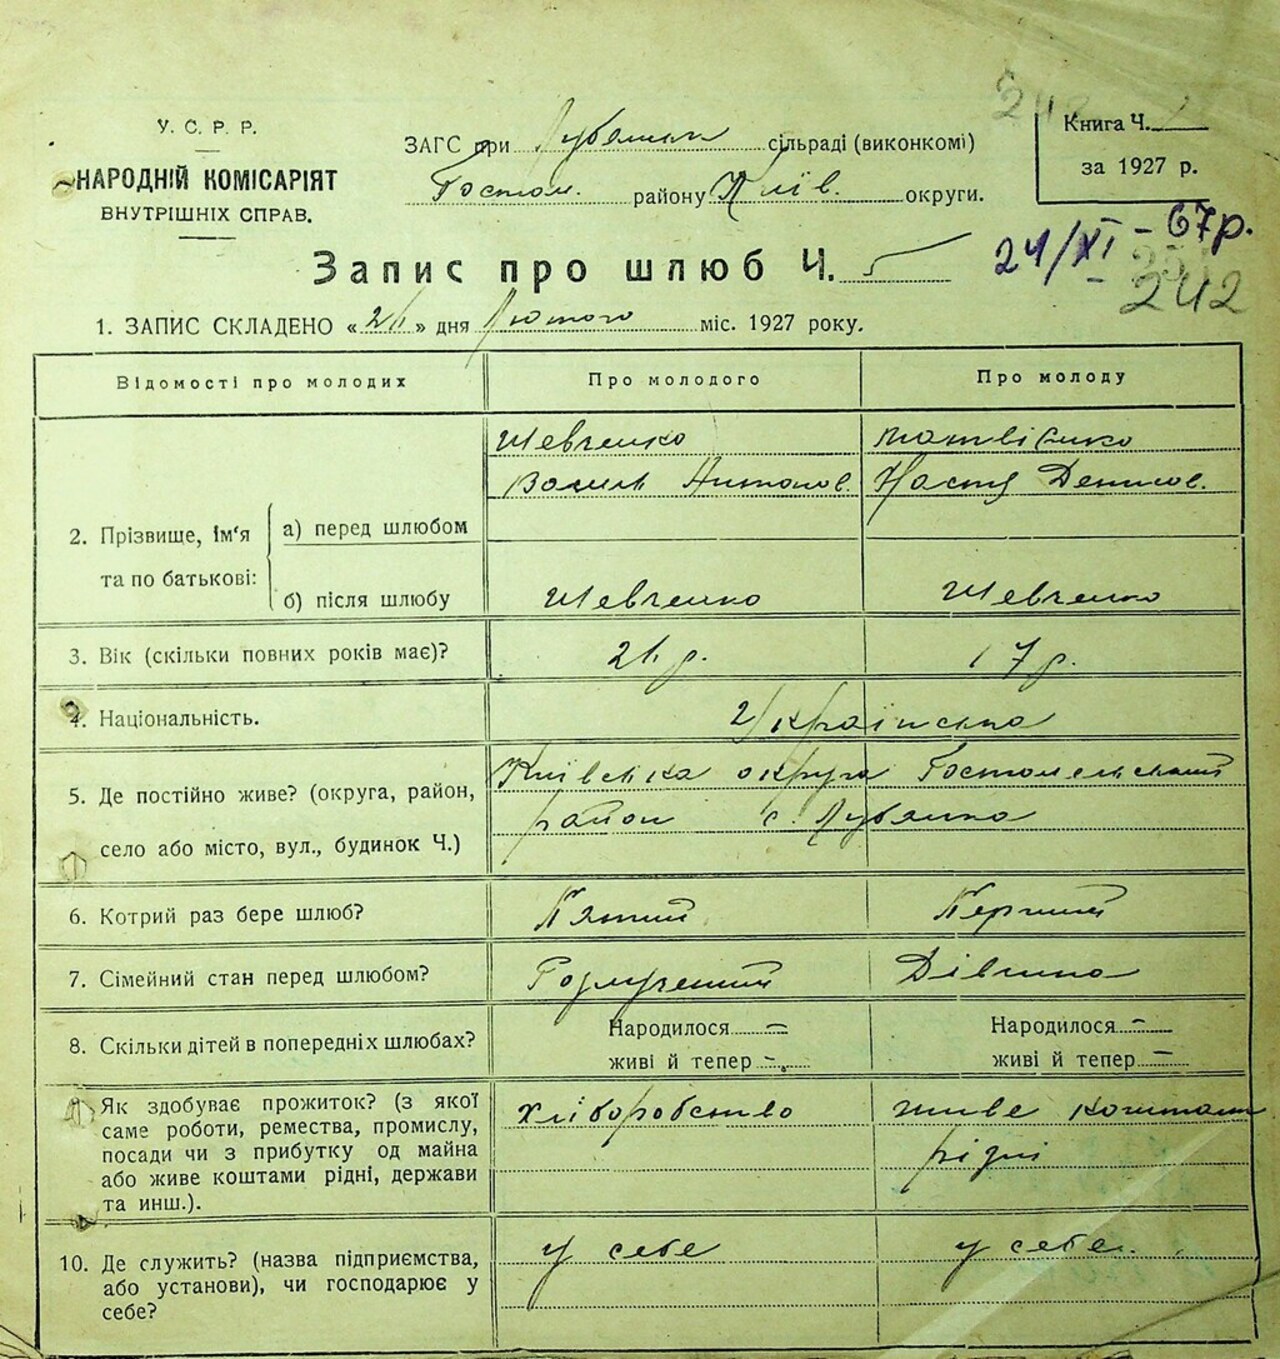 У. С. Р. Р.
НАРОДНІЙ КОМІСАРІЯТ
ВНУТРІШНІХ СПРАВ.
ЗАГС при Лубянськ сільраді (виконкомі)
Гостом. району Київ. округи.
Книга Ч.
за 1927 р.
24/XI - 67р.
242
Запис про шлюб Ч. 5
1. ЗАПИС СКЛАДЕНО «21» дня Лютого міс. 1927 року.
Відомості про молодих
Про молодого
Про молоду
2. Прізвище, ім'я та по батькові:
а) перед шлюбом
Шевченко
Василь Антонов.
Матвієнко
Настя Денисов.
б) після шлюбу
Шевченко
Шевченко
3. Вік (скільки повних років має)?
21 р.
17 р.
4. Національність.
Українська
5. Де постійно живе? (округа, район,
село або місто, вул., будинок Ч.)
Київська округа Гостомельський
район с. Лубянка
6. Котрий раз бере шлюб?
Пятий
Перший
7. Сімейний стан перед шлюбом?
Розлучений
Дівчина
8. Скільки дітей в попередніх шлюбах?
Народилося –
живі й тепер –
Народилося –
живі й тепер –
Як здобуває прожиток? (з якої
саме роботи, ремества, промислу,
посади чи з прибутку од майна
або живе коштами рідні, держави
та инш.).
хліборобство
живе коштами
рідні
10. Де служить? (назва підприємства,
або установи), чи господарює у
себе?
у себе
у себе.